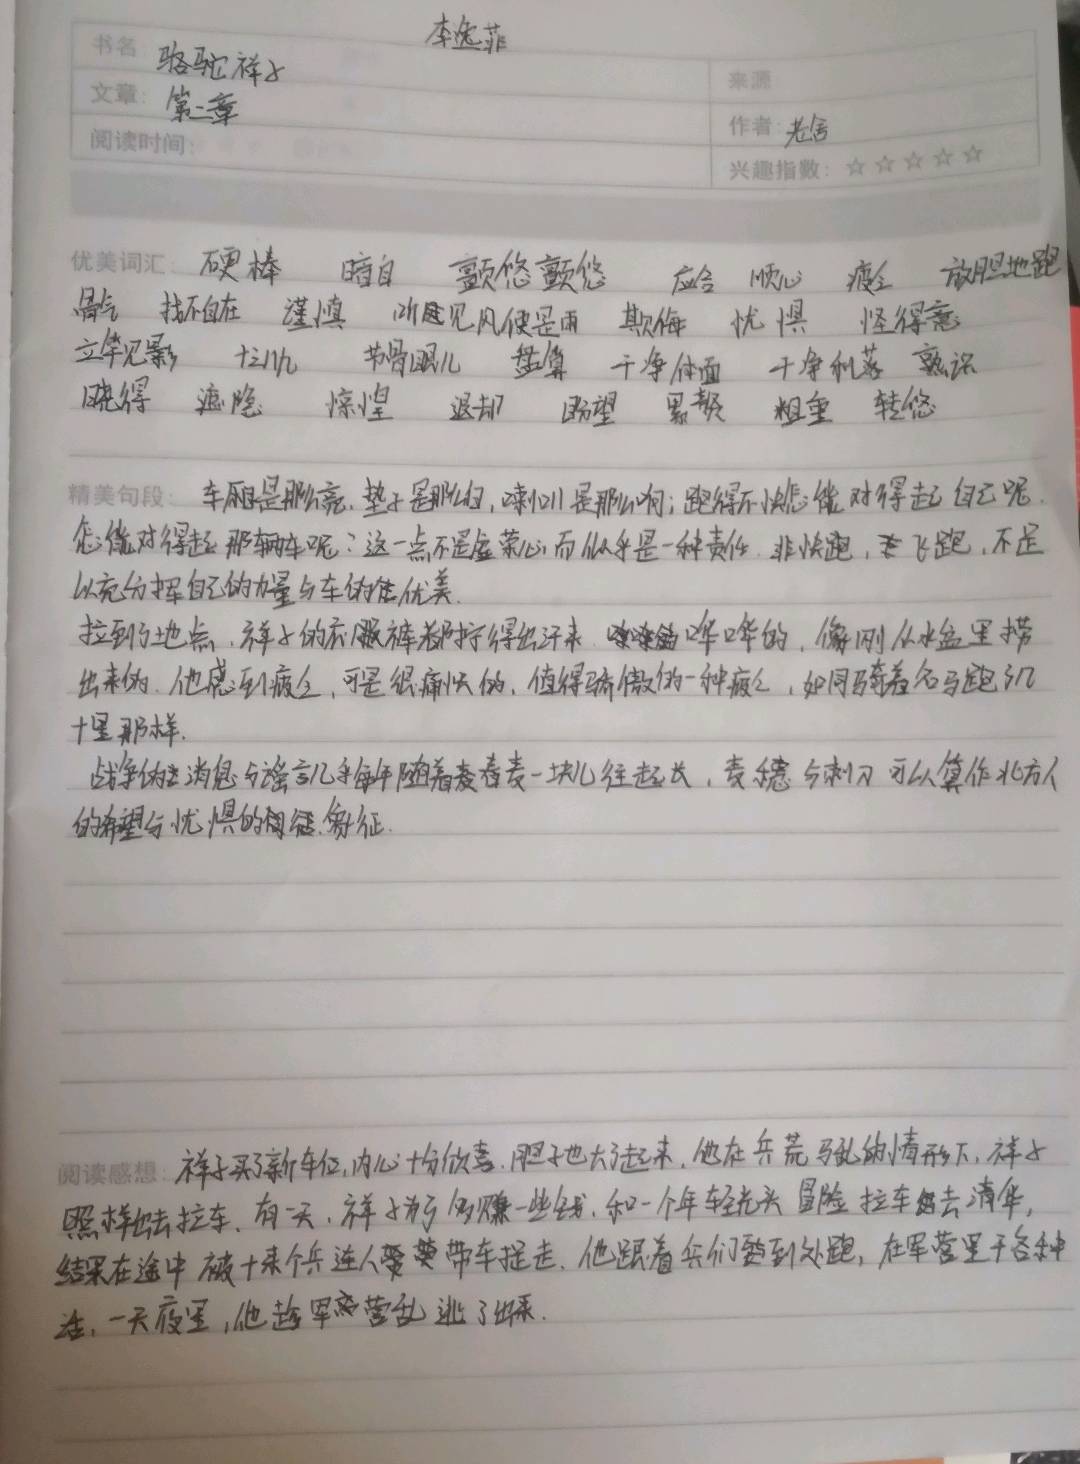 李逸菲
书名 骆驼祥子
来源
文章: 第二章
作者: 老舍
阅读时间:
兴趣指数: ☆☆☆☆☆
优美词汇: 硬棒 暗自 颤悠颤悠 应合 顺心 疲乏 放胆地跑
骨气 找不自在 谨慎 听见风便是雨 欺侮 忧惧 怪得意
立竿见影 节骨眼儿 盘算 干净体面 干净利落 熟识
晓得 遮隐 惊惶 退却 盼望 累赘 粗重 转悠
精美句段: 车厢是那么亮,垫子是那么白,喇叭是那么响;跑得不快怎能对得起自己呢,
怎能对得起那辆车呢?这一点不是虚荣心,而似乎是一种责任,非快跑,飞跑,不足
以充分挥自己的力量与车的优美.
拉到了地点,祥子的衣服裤都拧得出汗来,哗哗的,像刚从水盆里捞
出来的.他感到疲乏,可是很痛快的,值得骄傲的一种疲乏,如同骑着名马跑了几
十里那样.
战争的消息与谣言几乎每年随着春麦一块儿往起长,麦穗与刺刀可以算作北方人
的希望与忧惧的象征.
阅读感想: 祥子买了新车位,内心十分欣喜.胆子也大了起来,他在兵荒马乱的情形下,祥子
照样出去拉车.有一天,祥子为了多赚一些钱,和一个年轻光头冒险拉车去清华,
结果在途中被十来个兵连人带车捉走.他跟着兵们到处跑,在军营里干各种
活,一天夜里,他趁军营乱逃了出来.